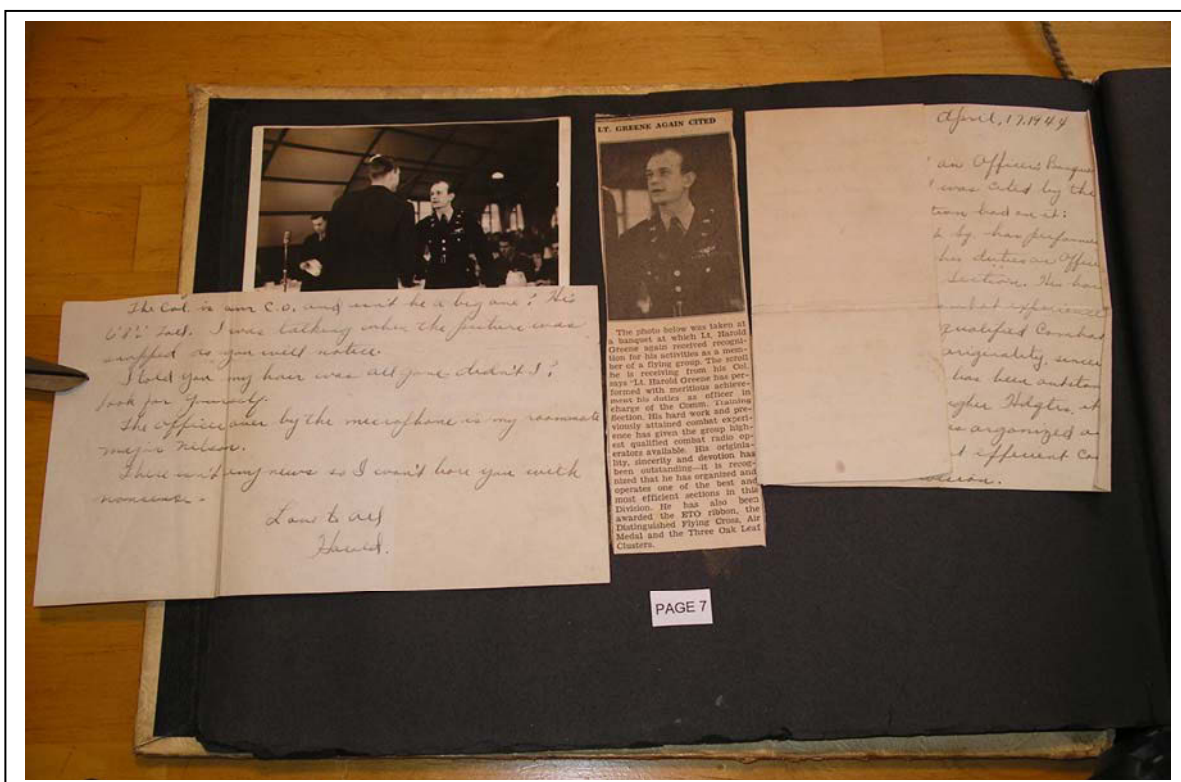 The Col. is our C.O. and isn't he a big one? He's
6'8½" tall. I was talking when the picture was
snapped as you will notice.
I told you my hair was all gone didn't I?
Look for yourself.
The officer over by the microphone is my roommate
Major Nilson.
There isn't any news so I won't bore you with
nonsense.
Love to all
Harold.
LT. GREENE AGAIN CITED
The photo below was taken at
a banquet at which Lt. Harold
Greene again received recogni-
tion for his activities as a mem-
ber of a flying group. The scroll
he is receiving from his Col.
says "Lt. Harold Greene has per-
formed with meritious achieve-
ment his duties as officer in
charge of the Comm. Training
Section. His hard work and pre-
viously attained combat experi-
ence has given the group high-
est qualified combat radio op-
erators available. His origina-
lity, sincerity and devotion has
been outstanding—it is recog-
nized that he has organized and
operates one of the best and
most efficient sections in this
Division. He has also been
awarded the ETO ribbon, the
Distinguished Flying Cross, Air
Medal and the Three Oak Leaf
Clusters.
April, 17, 1944
an Officers Banque
was cited by the
tion had on it:
by, has performe
his duties as Offic
Section. His har
ombat experience
qualified Combat
originality, since
has been outstan
Hdqtrs, it
organized a
t efficient
PAGE 7